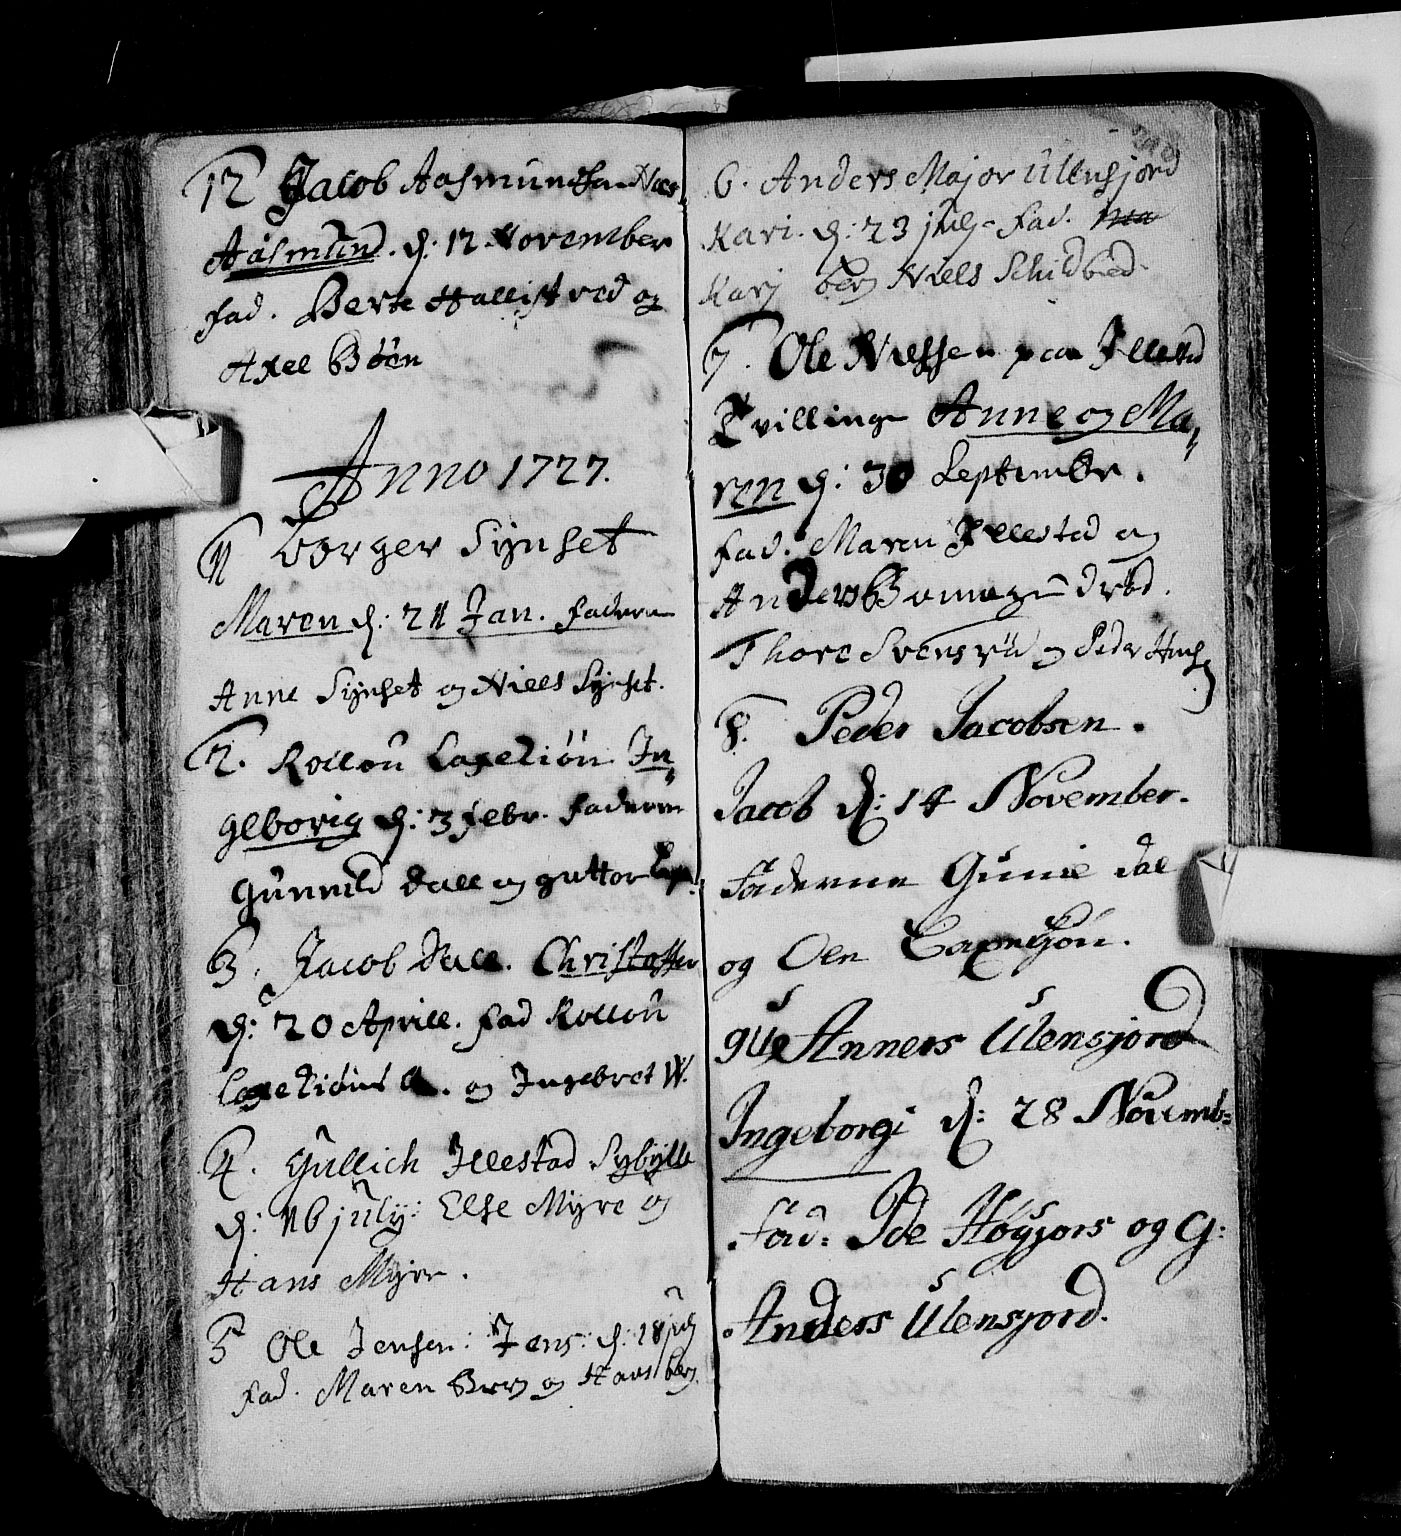 12 Jacob Aasmundsen Næs
Aasmund. d: 12 November
fad. Berte Hallistved og
Axel Böen
Anno 1727.
1 Börger Sÿnset
Maren d: 21 Jan. Faderne
Anne Sÿnset og Niels Sÿnset.
2. Rollou Laxetiön In-
geborig d: 3 febr. Faderne
Gunnild Dall og guttor
3. Jacob Dall. Christoffer
d: 20 Aprill. fad Rollou
Laxetiöns og Ingebret W.
4. Gullich Illestad Sybille
d: 16 july: Else Myre og
Hans Myre.
5 Ole Jensen: Jens: d: 18 july
Fad. Maren Berg og Hans berg
6. Anders Major Ullensjord
Kari. d: 23 july Fad.
Karj berg Niels Schidbred.
7. Ole Nielssen paa Illestad
Tvillinge Anne og Ma-
ren d: 30 September.
fad. Maren Illestad og
Anders
Thore Svensrud og Peder
8. Peder Jacobsen.
Jacob d: 14 November.
Faderne Guni Dal
og Oen
9 Anners Ulensjord
Ingeborgi d: 28 Novemb:
Fad: Ide Höyjors og G:
Anders Ulensjord.